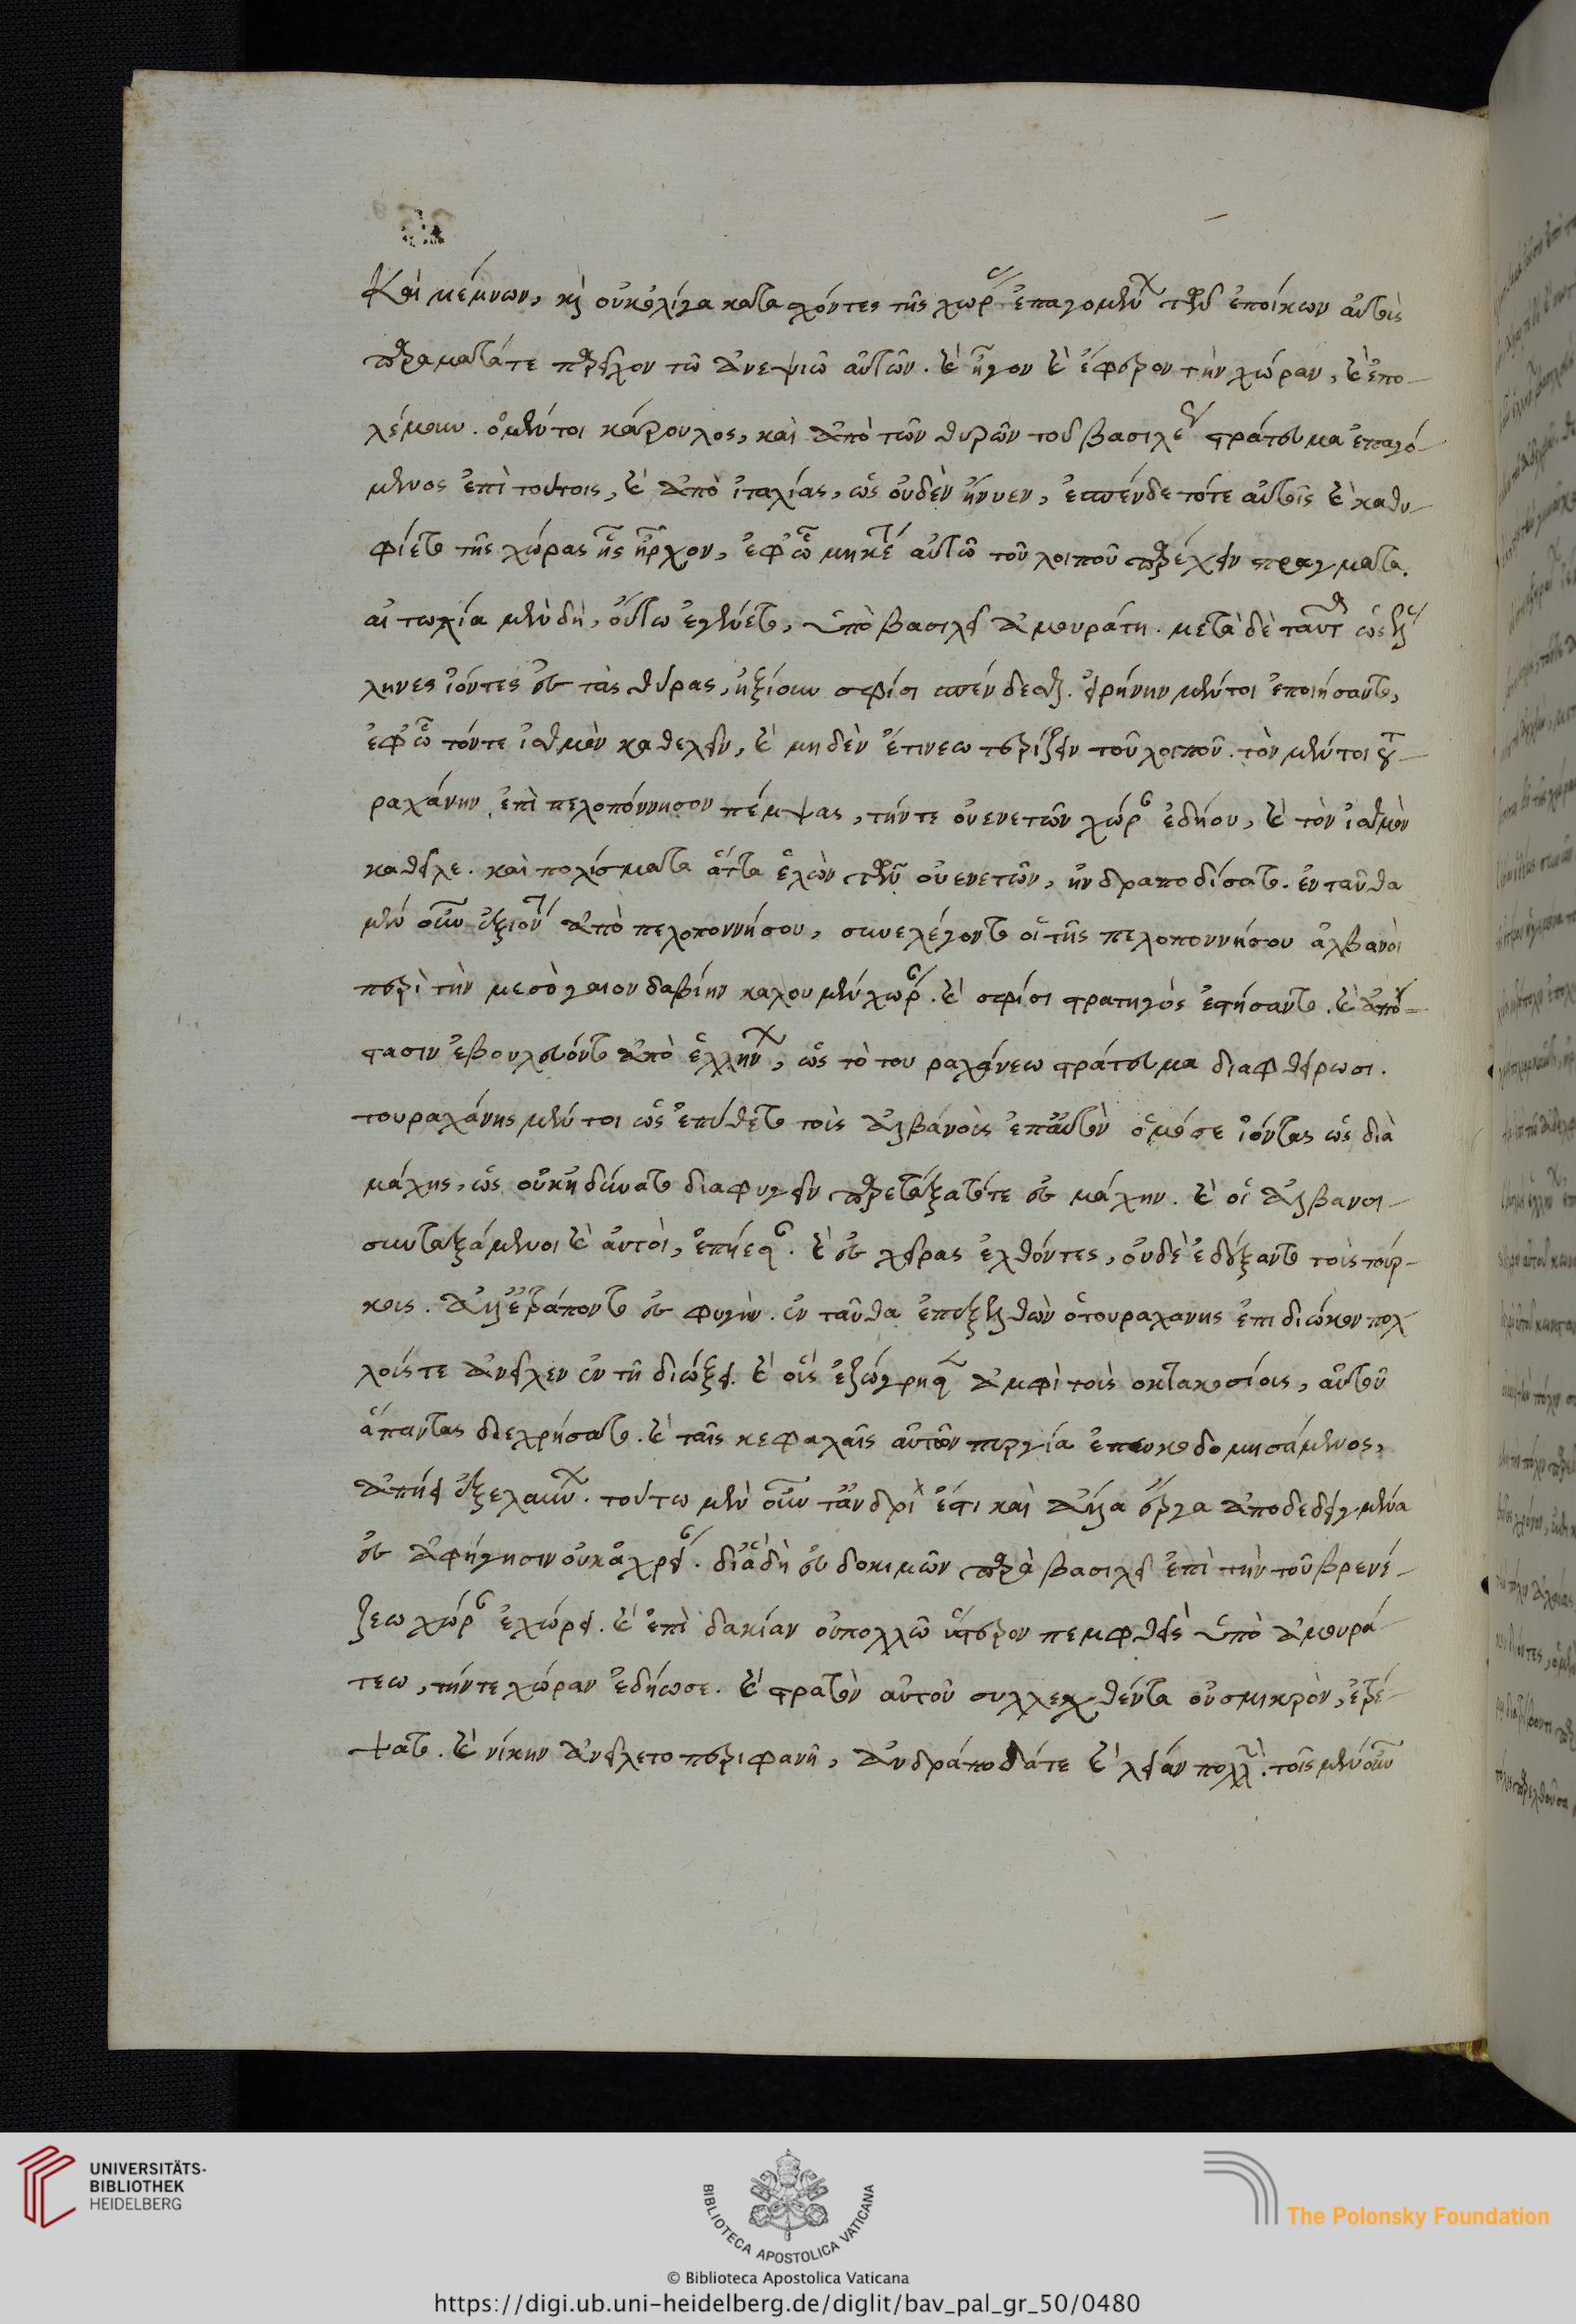 Καὶ μέμνων, καὶ οὐκ ὀλίγα κατασχόντες τῆς χώρας ἐπαγομένων τῶν ἐποίκων αὐτοῖς
πράγματά τε παρεῖχον τῶ ἀνεψιῶ αὐτῶν. καὶ ἦγον καὶ ἔφερον τὴν χώραν, καὶ ἐπο-
λέμουν. ὁ μέντοι κάρουλος, καὶ ἀπὸ τῶν θυρῶν τοῦ βασιλέως στράτευμα ἐπαγό-
μενος ἐπὶ τούτοις, καὶ ἀπὸ ἰταλίας, ὡς οὐδὲν ἤνυεν, ἐσπένδετό τε αὐτοῖς καὶ καθυ-
φίετο τῆς χώρας ἧς ἦρχον, ἐφ' ᾧ μηκέτι αὐτῶ τοῦ λοιποῦ παρέχειν πράγματα.
αἰτωλία μὲν δὴ, οὕτω ἐγένετο, ὑπὸ βασιλεῖ ἀμουράτη. μετὰ δὲ ταῦτα ὡς ἕλ
ληνες ἰόντες ἐς τὰς θύρας, ἠξίουν σφίσι σπένδεσθαι. εἰρήνην μέντοι ἐποιήσαντο,
ἐφ' ᾧ τόν τε ἰσθμὸν καθελεῖν, καὶ μηδὲν ἔτι νεωτερίζειν τοῦ λοιποῦ. τὸν μέντοι του-
ραχάνην ἐπὶ πελοπόννησον πέμψας, τήν τε οὐενετῶν χώραν ἐδήου, καὶ τὸν ἰσθμὸν
καθεῖλε. καὶ πολίσματα ἄττα ἑλὼν τῶν οὐενετῶν, ἠνδραποδίσατο. ἐνταῦθα
μὲν οὖν ἐξιόντι ἀπὸ πελοποννήσου, συνελέγοντο οἱ τῆς πελοποννήσου ἀλβανοὶ
περὶ τὴν μεσόγαιον δαβίην καλουμένην χώραν. καὶ σφίσι στρατηγὸν ἐστήσαντο. καὶ ἀπό-
στασιν ἐβουλεύοντο ἀπὸ ἑλλήνων, ὡς τὸ του ραχάνεω στράτευμα διαφθείρωσι.
τουραχάνης μέντοι ὡς ἐπύθετο τοὺς ἀλβάνους ἐπ' αὐτὸν ὁμόσε ἰόντας ὡς διὰ
μάχης, ὡς οὐκ ἠδύνατο διαφυγεῖν παρετάξατό τε ἐς μάχην. καὶ οἱ ἀλβανοι
συνταξάμενοι καὶ αὐτοὶ, ἐπήεσαν. καὶ ἐς χεῖρας ἐλθόντες, οὐδὲ ἐδέξαντο τοὺς τούρ-
κους. ἀλλ' ἐτράποντο ἐς φυγὴν. ἐν ταῦθα ἐπεξελθὼν ὁ τουραχανης ἐπιδιώκων πολ
λούς τε ἀνεῖλεν ἐν τῆ διώξει. καὶ οὓς ἐζώγρησεν ἀμφὶ τοὺς οκτακοσίους, αὐτοῦ
ἅπαντας διεχρήσατο. καὶ ταῖς κεφαλαῖς αὐτῶν πυργία ἐποικοδομησάμενος,
ἀπήει ἐξελαύνων. τούτω μὲν οὖν τἀνδρὶ ἔστι καὶ ἄλλα ἔργα ἀποδεδειγμένα
ἐς ἀφήγησιν οὐκ ἀχρεῖα. δι' ἃ δὴ εὐδοκιμῶν παρὰ βασιλεῖ ἐπὶ τὴν τοῦ βρενέ-
ζεω χώραν ἐχώρει. καὶ ἐπὶ δακίαν οὐ πολλῶ ὕστερον πεμφθεὶς ὑπὸ ἀμουρά-
τεω, τήν τε χώραν ἐδήωσε. καὶ στρατὸν αὐτοῦ συλλεχθέντα οὐ σμικρὸν, ἐτρέ-
ψατο. καὶ νίκην ἀνείλετο περιφανῆ, ἀνδράποδά τε καὶ λείαν πολλὴν. τοῖς μὲν οὖν
UNIVERSITÄTS-
BIBLIOTHEK
HEIDELBERG
BIBLIOTECA APOSTOLICA VATICANA
The Polonsky Foundation
© Biblioteca Apostolica Vaticana
https://digi.ub.uni-heidelberg.de/diglit/bav_pal_gr_50/0480